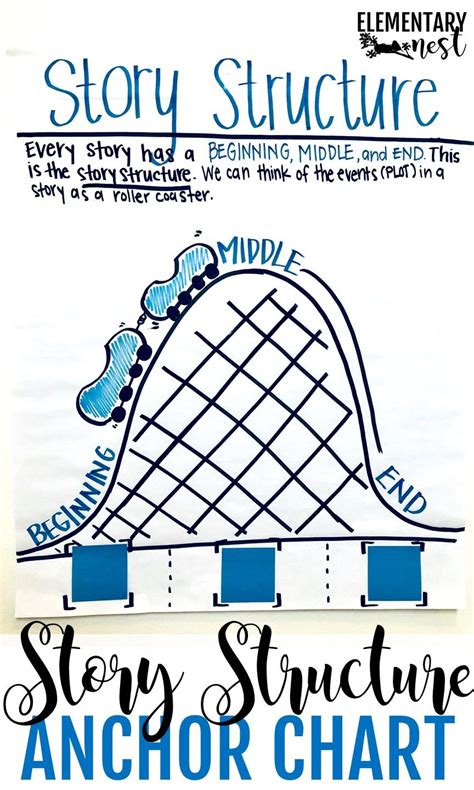 ELEMENTARY
nest
Story Structure
Every story has a BEGINNING, MIDDLE, and END. This
is the story structure. We can think of the events (PLOT) in a
story as a roller coaster.
MIDDLE
BEGINNING
END
Story Structure
ANCHOR CHART